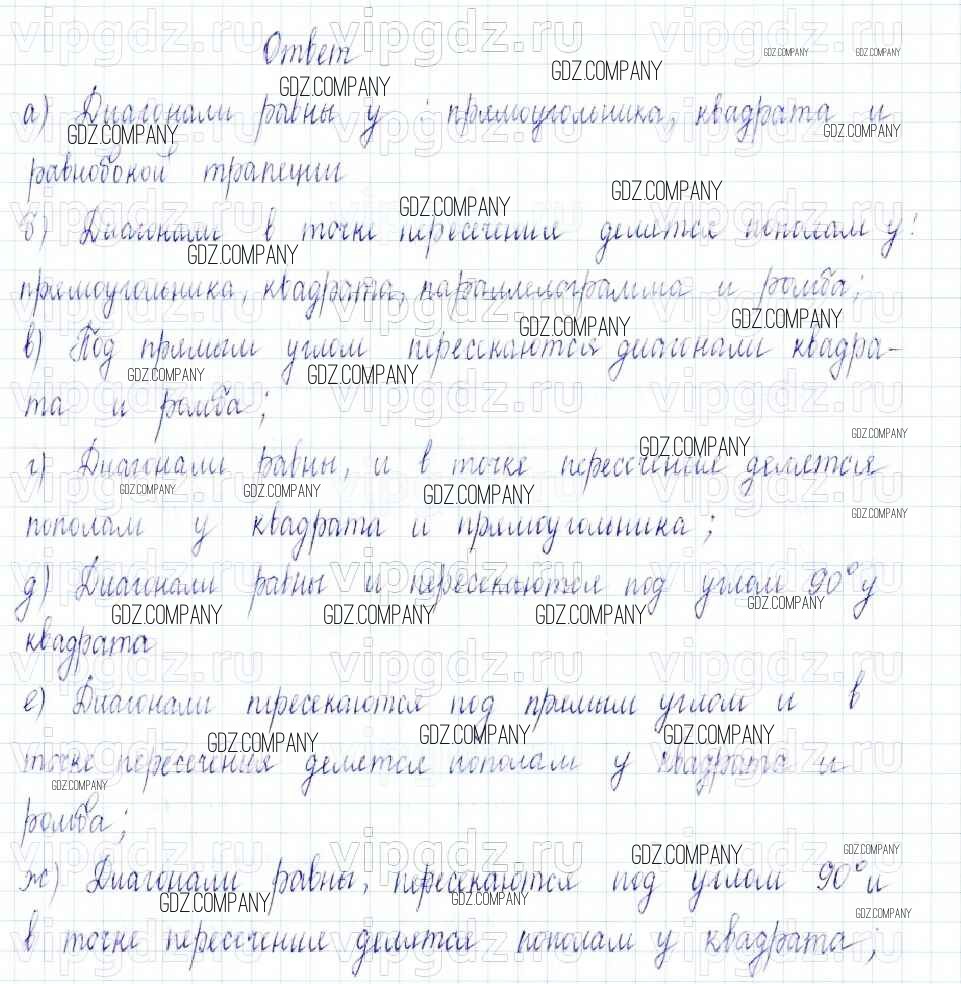 Ответ
а) Диагонали равны у : прямоугольника, квадрата и
равнобокой трапеции
б) Диагонали в точке пересечения делятся пополам у:
прямоугольника, квадрата, параллелограмма и ромба;
в) Под прямым углом пересекаются диагонали квадра-
та и ромба;
г) Диагонали равны, и в точке пересечения делятся
пополам у квадрата и прямоугольника;
д) Диагонали равны и пересекаются под углом 90° у
квадрата
е) Диагонали пересекаются под прямым углом и в
точке пересечения делятся пополам у квадрата и
ромба;
ж) Диагонали равны, пересекаются под углом 90° и
в точке пересечения делятся пополам у квадрата;
GDZ.COMPANY
vipgdz.ru